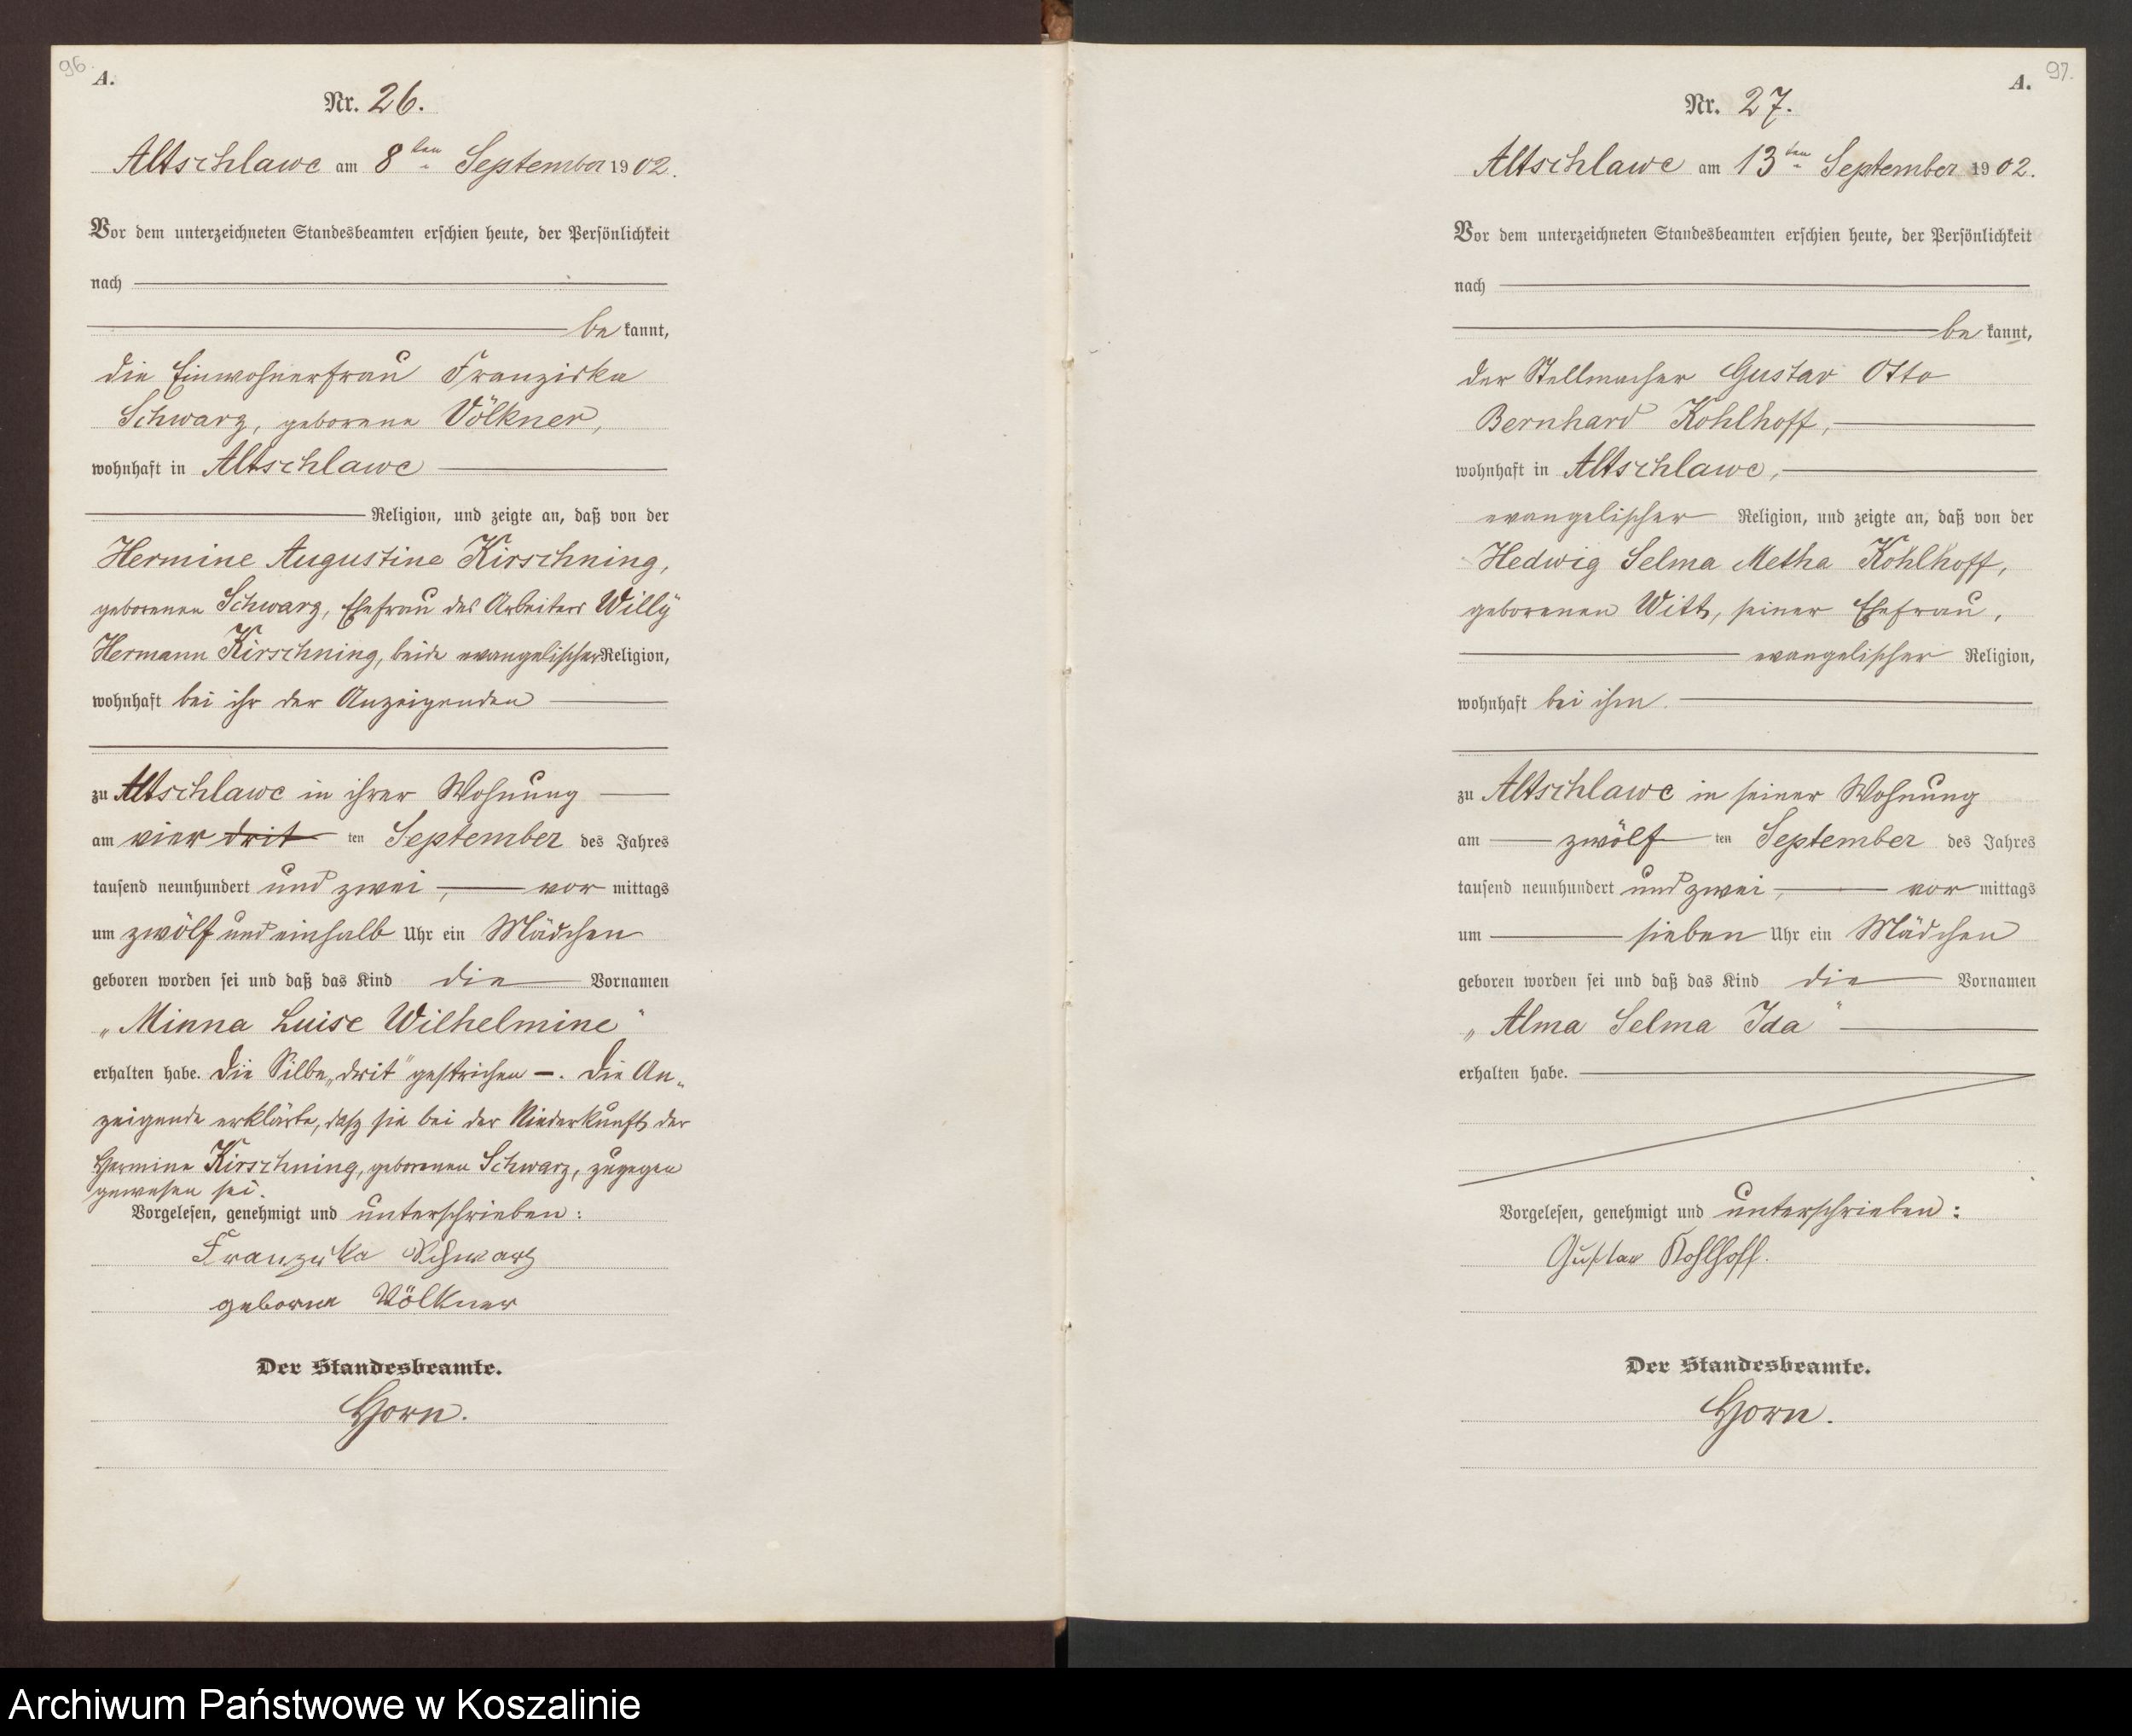 96.
A.
Nr. 26.
Altschlawe am 8ten September 1902.
Vor dem unterzeichneten Standesbeamten erschien heute, der Persönlichkeit
nach
be kannt,
die Einwohnerfrau Franziska
Schwarz, geborene Völkner,
wohnhaft in Altschlawe
Religion, und zeigte an, daß von der
Hermine Augustine Kirschning,
geborenen Schwarz, Ehefrau des Arbeiters Willÿ
Hermann Kirschning, beide evangelischer Religion,
wohnhaft bei ihr der Anzeigenden
zu Altschlawe in ihrer Wohnung
am vier drit ten September des Jahres
tausend neunhundert und zwei, vor mittags
um zwölf und einhalb Uhr ein Mädchen
geboren worden sei und daß das Kind die Vornamen
„Minna Luise Wilhelmine“
erhalten habe. Die Silbe „drit“ gestrichen —. Die An„
zeigende erklärte, daß sie bei der Niederkunft der
Hermine Kirschning, geborenen Schwarz, zugegen
gewesen sei.
Vorgelesen, genehmigt und unterschrieben:
Franziska Schwarz
geborne Völkner
Der Standesbeamte.
Horn.
97.
A.
Nr. 27.
Altschlawe am 13ten September 1902.
Vor dem unterzeichneten Standesbeamten erschien heute, der Persönlichkeit
nach
be kannt,
der Stellmacher Gustav Otto
Bernhard Kohlhoff,
wohnhaft in Altschlawe,
evangelischer Religion, und zeigte an, daß von der
Hedwig Selma Metha Kohlhoff,
geborenen Witt, seiner Ehefrau,
evangelischer Religion,
wohnhaft bei ihm.
zu Altschlawe in seiner Wohnung
am zwölf ten September des Jahres
tausend neunhundert und zwei, vor mittags
um sieben Uhr ein Mädchen
geboren worden sei und daß das Kind die Vornamen
„Alma Selma Ida“
erhalten habe.
Vorgelesen, genehmigt und unterschrieben:
Gustav Kohlhoff.
Der Standesbeamte.
Horn.
Archiwum Państwowe w Koszalinie